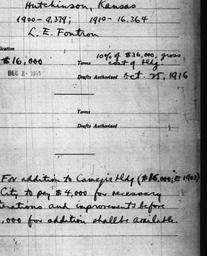 Hutchinson, Kansas
1900-9,379; 1910-16,364
L. E. Fontron
$16,000 Terms 10% of $36,000, gross cost of bldg
DEC 2 - Drafts Authorized Oct. 25, 1916
Terms
Drafts Authorized
For addition to Carnegie bldg ($15,000; E 1902)
City to pay $4,000 for necessary
rations and improvements before
,000 for addition shall be available.